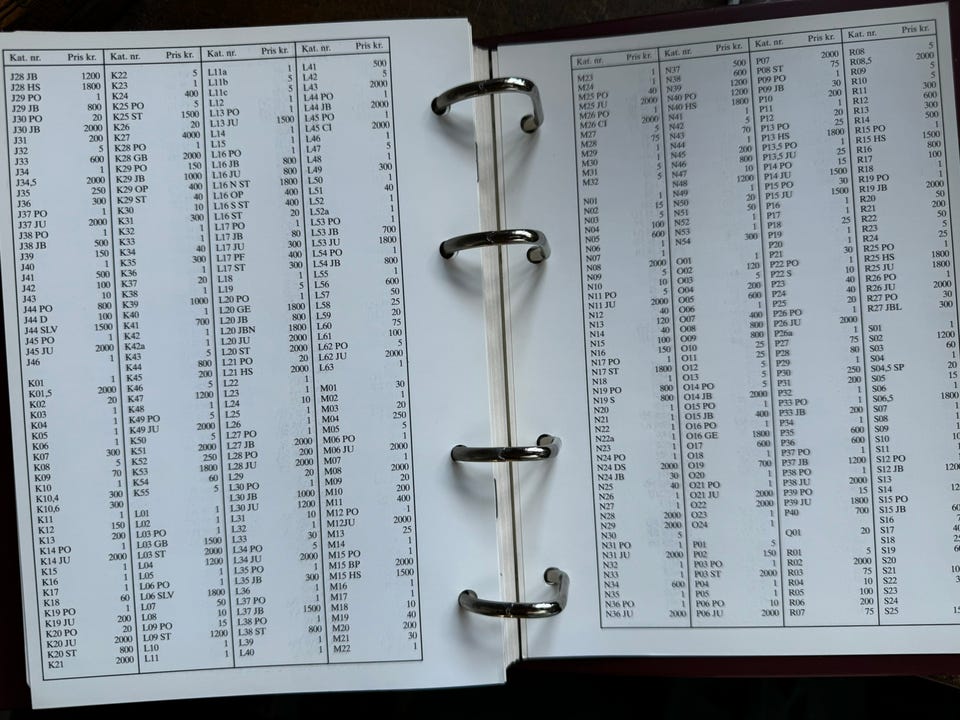 Kat. nr. Pris kr.
J28 JB 1200
J28 HS 1800
J29 PO 1
J29 JB 800
J30 PO 20
J30 JB 2000
J31 200
J32 5
J33 600
J34 1
J34,5 2000
J35 250
J36 300
J37 PO 1
J37 JU 2000
J38 PO 1
J38 JB 500
J39 150
J40 1
J41 500
J42 100
J43 10
J44 PO 800
J44 D 100
J44 SLV 1500
J45 PO 1
J45 JU 2000
J46 1
K01 1
K01,5 2000
K02 20
K03 1
K04 1
K05 1
K06 1
K07 300
K08 5
K09 70
K10 1
K10,4 300
K10,6 300
K11 1
K12 150
K13 200
K14 PO 1
K14 JU 2000
K15 1
K16 1
K17 1
K18 60
K19 PO 1
K19 JU 200
K20 PO 20
K20 JU 2000
K20 ST 800
K21 2000
Kat. nr. Pris kr.
K22 5
K23 1
K24 400
K25 PO 5
K25 ST 1500
K26 20
K27 4000
K28 PO 1
K28 GB 2000
K29 PO 150
K29 JB 1000
K29 OP 400
K29 ST 40
K30 10
K31 300
K32 1
K33 1
K34 40
K35 300
K36 1
K37 20
K38 1
K39 1000
K40 1
K41 700
K42 1
K42a 1
K43 5
K44 800
K45 200
K46 5
K47 1200
K48 1
K49 PO 5
K49 JU 2000
K50 5
K51 2000
K52 250
K53 1800
K54 60
K55 5
L01 1
L02 1
L03 PO 1
L03 GB 1500
L03 ST 2000
L04 1200
L05 1
L06 PO 1
L06 SLV 1800
L07 50
L08 10
L09 PO 15
L09 ST 1200
L10 1
L11 1
Kat. nr. Pris kr.
L11a 1
L11b 5
L11c 5
L12 1
L13 PO 1
L13 JU 1500
L14 1
L15 1
L16 PO 1
L16 JB 800
L16 JU 800
L16 N ST 1800
L16 OP 400
L16 S ST 400
L16 ST 20
L17 PO 1
L17 JB 80
L17 JU 300
L17 PF 400
L17 ST 300
L18 1
L19 5
L20 PO 1
L20 GE 1800
L20 JB 800
L20 JBN 1800
L20 JU 2000
L20 ST 2000
L21 PO 20
L21 HS 2000
L22 1
L23 1
L24 10
L25 1
L26 1
L27 PO 1
L27 JB 200
L28 PO 200
L28 JU 2000
L29 20
L30 PO 1
L30 JB 1000
L30 JU 1200
L31 10
L32 1
L33 30
L34 PO 5
L34 JU 2000
L35 PO 1
L35 JB 300
L36 1
L37 PO 1
L37 JB 1500
L38 PO 1
L38 ST 800
L39 1
L40 1
Kat. nr. Pris kr.
L41 500
L42 5
L43 2000
L44 PO 1
L44 JB 2000
L45 PO 1
L45 CI 2000
L46 1
L47 5
L48 1
L49 300
L50 1
L51 40
L52 1
L52a 1
L53 PO 1
L53 JB 700
L53 JU 1800
L54 PO 1
L54 JB 800
L55 1
L56 600
L57 50
L58 25
L59 20
L60 75
L61 100
L62 PO 5
L62 JU 2000
L63 1
M01 30
M02 1
M03 20
M04 250
M05 5
M06 PO 1
M06 JU 2000
M07 1
M08 2000
M09 20
M10 200
M11 400
M12 PO 1
M12JU 2000
M13 25
M14 1
M15 PO 1
M15 BP 2000
M15 HS 1500
M16 1
M17 1
M18 10
M19 40
M20 200
M21 30
M22 1
Kat. nr. Pris kr.
M23 1
M24 1
M25 PO 40
M25 JU 2000
M26 PO 1
M26 CI 2000
M27 75
M28 1
M29 1
M30 5
M31 5
M32 1
N01 1
N02 15
N03 5
N04 100
N05 600
N06 1
N07 1
N08 2000
N09 5
N10 10
N11 PO 1
N11 JU 2000
N12 40
N13 40
N14 100
N15 100
N16 150
N17 PO 1
N17 ST 1800
N18 1
N19 PO 800
N19 S 800
N20 1
N21 1
N22 1
N22a 1
N23 1
N24 PO 1
N24 DS 2000
N24 JB 30
N25 40
N26 1
N27 1
N28 2000
N29 2000
N30 5
N31 PO 1
N31 JU 2000
N32 1
N33 1
N34 600
N35 1
N36 PO 1
N36 JU 2000
Kat. nr. Pris kr.
N37 500
N38 600
N39 1200
N40 PO 1
N40 HS 1800
N41 1
N42 5
N43 70
N44 1
N45 10
N46 800
N47 1200
N48 1
N49 1
N50 20
N51 50
N52 1
N53 300
N54 1
O01 1
O02 120
O03 5
O04 200
O05 600
O06 1
O07 400
O08 800
O09 800
O10 25
O11 25
O12 5
O13 5
O14 PO 1
O14 JB 2000
O15 PO 1
O15 JB 400
O16 PO 1
O16 GE 1800
O17 600
O18 1
O19 700
O20 1
O21 PO 1
O21 JU 2000
O22 2000
O23 1
O24 1
P01 5
P02 150
P03 PO 1
P03 ST 2000
P04 1
P05 1
P06 PO 10
P06 JU 2000
Kat. nr. Pris kr.
P07 2000
P08 ST 75
P09 PO 1
P09 JB 30
P10 1
P11 1
P12 20
P13 PO 25
P13 HS 1800
P13,5 PO 1
P13,5 JU 25
P14 PO 1
P14 JU 1500
P15 PO 30
P15 JU 1500
P16 1
P17 1
P18 25
P19 1
P20 1
P21 30
P22 PO 1
P22 S 40
P23 10
P24 40
P25 20
P26 PO 1
P26 JU 2000
P26a 1
P27 75
P28 80
P29 1
P30 250
P31 200
P32 1
P33 PO 1
P33 JB 200
P34 1
P35 600
P36 600
P37 PO 1
P37 JB 1200
P38 PO 1
P38 JU 2000
P39 PO 15
P39 JU 1800
P40 700
Q01 20
R01 5
R02 2000
R03 75
R04 10
R05 100
R06 200
R07 75
Kat. nr. Pris kr.
R08 5
R08,5 25
R09 5
R10 300
R11 600
R12 300
R13 500
R14 1
R15 PO 1500
R15 HS 800
R16 100
R17 1
R18 1
R19 PO
R19 JB 2000
R20 50
R21 200
R22 50
R23 5
R24 25
R25 PO 1
R25 HS 1800
R25 JU 1800
R26 PO 1
R26 JU 25
R27 PO 30
R27 JBL 300
S01 1
S02 1200
S03 1
S04 1
S04,5 SP 20
S05 15
S06 1
S06,5 1800
S07
S08
S09
S10
S11
S12 PO
S12 JB
S13
S14
S15 PO
S15 JB
S16
S17
S18
S19
S20
S21
S22
S23
S24
S25